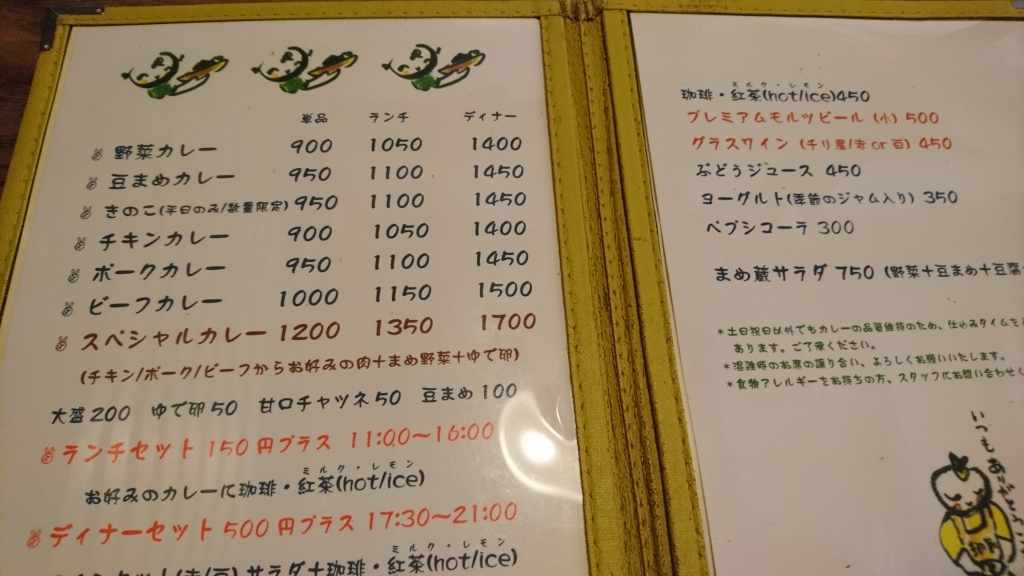 単品 ランチ ディナー
野菜カレー 900 1050 1400
豆まめカレー 950 1100 1450
きのこ(平日のみ/数量限定) 950 1100 1450
チキンカレー 900 1050 1400
ポークカレー 950 1100 1450
ビーフカレー 1000 1150 1500
スペシャルカレー 1200 1350 1700
(チキン/ポーク/ビーフからお好みの肉+まめ野菜+ゆで卵)
大盛200 ゆで卵50 甘口チャツネ50 豆まめ100
ランチセット 150円プラス 11:00～16:00
ミルク・レモン
お好みのカレーに珈琲・紅茶(hot/ice)
ディナーセット 500円プラス 17:30～21:00
ミルク・レモン
サラダ+珈琲・紅茶(hot/ice)
ミルク・レモン
珈琲・紅茶(hot/ice)450
プレミアムモルツビール (小) 500
グラスワイン (チリ産/赤or白) 450
ぶどうジュース 450
ヨーグルト(季節のジャム入り) 350
ペプシコーラ 300
まめ蔵サラダ 750 (野菜+豆まめ+豆腐
*土日祝日以外でもカレーの品質維持のため、仕込みタイムを
あります。ご了承ください。
*混雑時のお席の譲り合い、よろしくお願いいたします。
*食物アレルギーをお持ちの方、スタッフにお問い合わせく
いつもありがとう